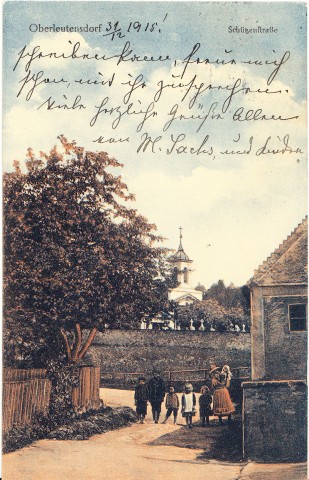 Oberleutensdorf 31/12 1915! Schützenstraße
schreiben kann, freue mich
schon, mit ihr zu sprechen.
Viele herzliche Grüße Allen
von M. Sachs, und